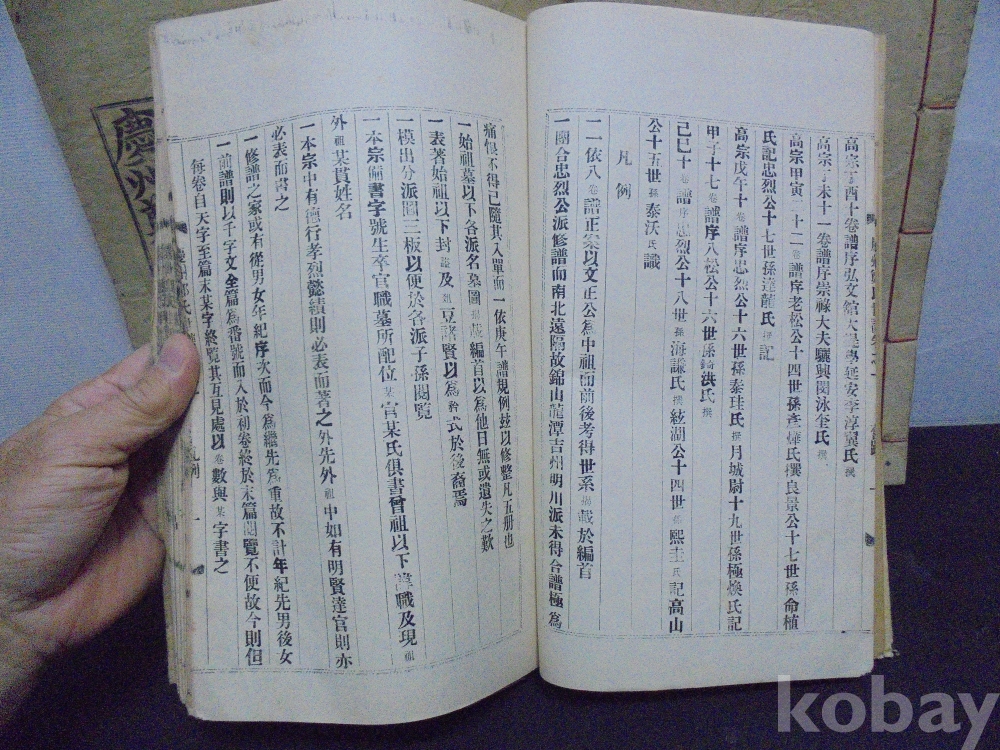 高宗丁酉十卷譜序弘文館大提學延安李淳翼氏撰
高宗丁未十一卷譜序崇祿大夫驪興閔泳奎氏撰
高宗甲寅二十二卷譜序老松公十四世孫彥燁氏撰良景公十七世孫命植
氏記忠烈公十七世孫達龍氏撰記
高宗戊午十卷譜序忠烈公十六世孫泰珪氏撰月城尉十九世孫極煥氏記
甲子十七卷譜序八松公十六世孫洪氏撰
己巳十卷譜序忠烈公十八世孫海謙氏撰絃湖公十四世孫熙圭氏記高山
公十五世孫泰沃氏識
凡例
一一依八卷譜正案以文正公為中祖而前後考得世系揭載於編首
一團合忠烈公派修譜而南北遠隔故錦山龍潭吉州明川派未得合譜極為
痛恨不得已隨其入單而一依庚午譜規例玆以修整凡五册也
一始祖墓以下各派名墓圖揭載編首以為他日無或遺失之歎
一表著始祖以下封諡及俎豆諸賢以為矜式於後裔焉
一模出分派圖二板以便於各派子孫閱覽
一本宗儷書字號生卒官職墓所配位某官某氏俱書曾祖以下諱職及現祖
外祖某貫姓名
一本宗中有德行孝烈懿績則必表而著之外先外祖中如有明賢達官則亦
必表而書之
一修譜之家或有從男女年紀序次而今為繼先為重故不計年紀先男後女
一前譜則以千字文全篇為番號而入於利卷終於末篇閱覽不便故今則但
每卷自天字至篇末某字終覽其互見處以卷數與某字書之
慶州
kobay